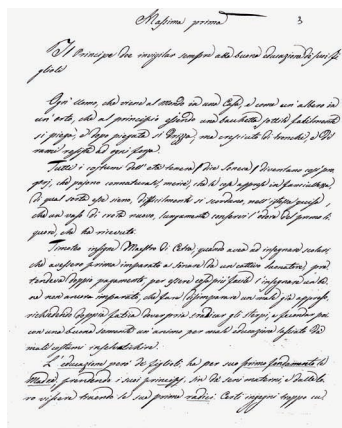 Massima prima
3
Il Principe dee invigilar sempre alla buona educazione de suoi fi
glioli
Ogni Uomo, che viene al Mondo in una Casa, è come un'albero in
un'orto, che al principio essendo una bacchetta sottile facilmente
si piega, e dopo piegata si drizza, ma cresciuta di tronchi, e di
rami resiste ad ogni forza.
Tutti i costumi dell'età tenera / dice Seneca / diventano così
che pajono connaturali, mentre, ciò che si apprese in fanciullezza
di qual sorte esso siano, difficilmente si scordano, nell'istessa guisa,
che un vaso di creta nuovo, lungamente conserva l'odore del primo li
quore, che ha ricevuto.
Timoteo insigne Maestro di Cetra, quando avea ad insegnare scolari,
che avessero prima imparato a sonare da un cattivo sonatore, pre
tendeva doppio pagamento, per essere così più facile l'insegnare un'ar
te non ancora imparata, che fare disimparare un male già appreso,
richiedendo doppia fatica dover pria sradicar gli sterpi, e fecondar poi
con una buona semente un'animo per mala educazione lasciato da
mali costumi insalvatichire.
L'educazione però de figlioli, ha per suo primo fondamento la
Madre, prendendo i suoi principj, sin da seni materni, e dalla la
ro viscere tenendo le sue prime radici. Certi ingegni troppo cu